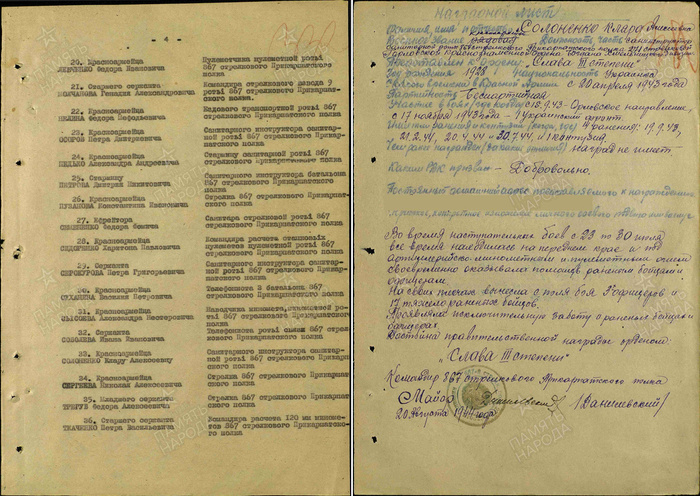 - 4 -
20. Красноармейца
Федора Ивановича
Пулеметчика пулеметной роты
867 стрелкового Прикарпатского
полка.
21. Старшего сержанта
МОЛЧАНОВА Геннадия Александровича
Командира стрелкового взвода 9
роты 867 стрелкового Прикарпат-
ского полка.
22. Красноармейца
Федора Мефодьевича
Ездового транспортной роты 867
стрелкового Прикарпатского полка.
23. Красноармейца
Петра Дмитриевича
Санитарного инструктора санитар-
ной роты 867 стрелкового Прикар-
патского полка.
24. Красноармейца
Александра Андреевича
Старшину санитарной роты 867
стрелкового Прикарпатского полка.
25. Старшину
ПЕТРОВА Дмитрия Никитовича
Санитарного инструктора батальона
867 стрелкового Прикарпатского полка.
26. Красноармейца
ПУЗАНОВА Константина Ивановича
Стрелка 867 стрелкового Прикарпат-
ского полка.
27. Ефрейтора
Федора Фомича
Санитара стрелковой роты 867
стрелкового Прикарпатского полка.
28. Красноармейца
СИДОРЕНКО Харитона Павловича
Командира расчета станковых
пулеметов пулеметной роты 867
стрелкового Прикарпатского полка.
29. Сержанта
СЕРОКУРОВА Петра Григорьевича
Санитарного инструктора санитар-
ной роты 867 стрелкового Прикар-
патского полка.
30. Красноармейца
Василия Петровича
Телефониста 3 батальона 867
стрелкового Прикарпатского полка.
31. Красноармейца
ЛЫСОВА Александра Нестеровича
Наводчика миномета, минометной ро-
ты 867 стрелкового Прикарпатского
полка.
32. Сержанта
СОБОЛЬВА Ивана Ивановича
Телефониста роты связи 867 стрел-
кового Прикарпатского полка.
33. Красноармейца
СОЛОНЕНКО Клару Алексеевну
Санитарного инструктора санитар-
ной роты 867 стрелкового Прикар-
патского полка
34. Красноармейца
СЕРГЕЕВА Николая Алексеевича
Стрелка 867 стрелкового Прикарпат-
ского полка
35. Младшего сержанта
ТРЕГУБ Федора Алексеевича
Стрелка 867 стрелкового Прикарпат-
ского полка
36. Старшего сержанта
ТКАЧЕНКО Петра Васильевича
Командира расчета 120 мм миноме-
тов 867 стрелкового Прикарпатско-
го полка
Наградной лист
Фамилия, имя и отчество Солоненко Клара
Военное звание рядовой Должность, часть санинструктор
санитарной роты 867 стрелкового Прикарпатского полка 271 стрелковой
Горловской Краснознаменной ордена Богдана Хмельницкого
Представлен к ордену „Слава III степени"
Год рождения 1928 Национальность Украинка
С какого времени в Красной Армии с 22 апреля 1943 года
Партийность Беспартийная
Участие в боях (где, когда) с 18.9.43 - Орловское направление,
с 17 ноября 1943 года - 1 Украинский фронт.
Имеет ли ранения и контузии (когда, где) 4 ранения: 19.9.43,
21.2.44, 20.4.44 - 20.7.44 и 1 контузия
Чем ранее награжден (за какие отличия) Наград не имеет
Каким РВК призван - Добровольно.
Во время наступательных боев с 23 по 30 июля
все время находилась на переднем крае и под
артиллерийско-минометным и пулеметным огнем
своевременно оказывала помощь раненым бойцам и
офицерам.
На своих плечах вынесла с поля боя 3 офицеров и
17 тяжело раненных бойцов.
Проявляла исключительную заботу о раненых бойцах и
офицерах.
Достойна правительственной награды орденом
„Слава III степени"
Командир 867 стрелкового Прикарпатского полка
Майор /Данилевский/
20 августа 1944 года
ПАМЯТЬ НАРОДА